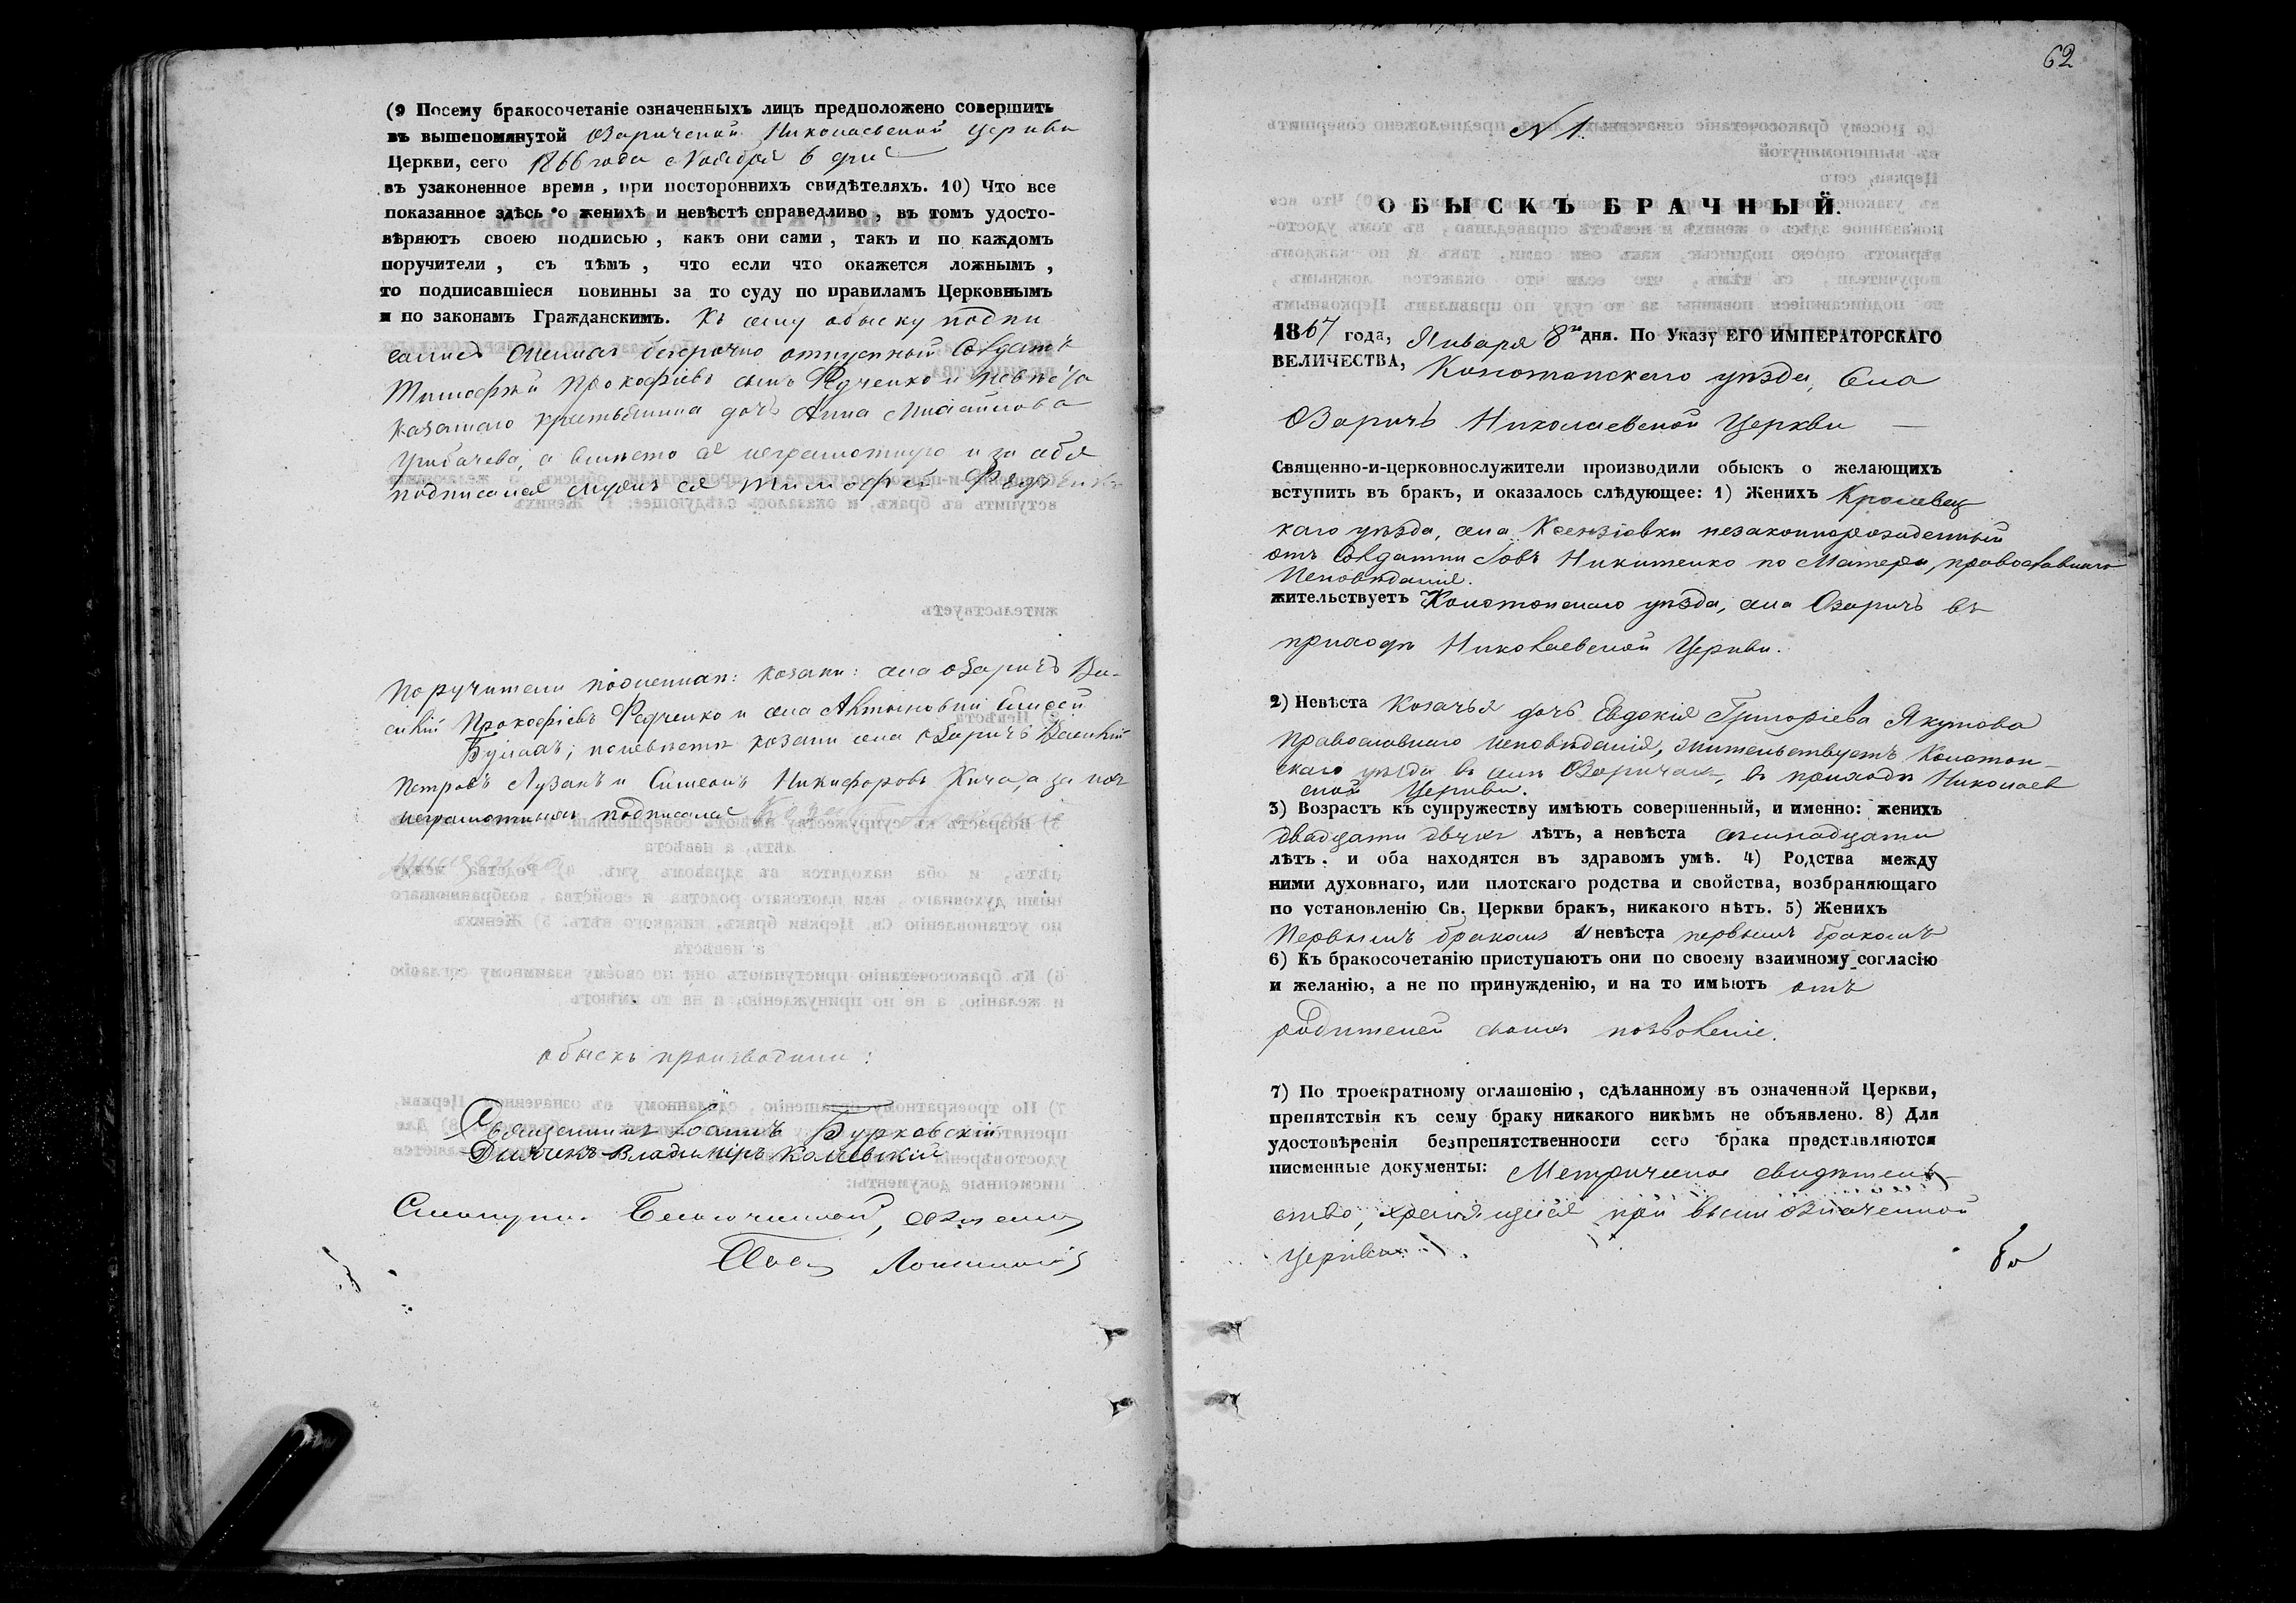 (9 Посему бракосочетаніе означенныхъ лицъ предположено совершить
въ вышепомянутой Озаричской Николаевской церкви
Церкви, сего 1866 года Ноября 6 дня
въ узаконенное время, при постороннихъ свидѣтеляхъ. 10) Что все
показанное здѣсь о женихѣ и невѣстѣ справедливо, въ томъ удосто-
вѣряютъ своею подписью, какъ они сами, такъ и по каждомъ
поручители, съ тѣмъ, что если что окажется ложнымъ,
то подписавшіеся повинны за то суду по правиламъ Церковнымъ
и по законамъ Гражданскимъ. Къ сему обыску подпи
безсрочно отпускной Солдатъ
Тимофей Прокофіевъ сынъ Редченко и невѣста
козачьяго дочь Анна Михайлова
Грибачева, а вмѣсто ея неграмотную и за себя
подписался мужъ ея Тимофей Редченко
Поручители по козаки: села Озаричъ Ва-
силій Прокофіевъ Редченко и села
по невѣстѣ козаки села Озаричъ Василій
Петровъ Лузанъ и Симеонъ Никифоровъ Кича, а за
неграмотныхъ подписался
обыскъ производили:
Священникъ Іоаннъ Бурковскій
Дьячекъ Владиміръ
62
N 1.
ОБЫСКЪ БРАЧНЫЙ.
1867 года, Января 8го дня. По Указу ЕГО ИМПЕРАТОРСКАГО
ВЕЛИЧЕСТВА, Конотопскаго уѣзда, села
Озаричъ Николаевской Церкви —
Священно-и-церковнослужители производили обыскъ о желающихъ
вступить въ бракъ, и оказалось слѣдующее: 1) Женихъ Кролевец
каго уѣзда, села Ксензовки незаконнорожденный
отъ Солдатки Іовъ Никитенко по Матери, православнаго
Исповѣданія.
жительствуетъ Конотопскаго уѣзда, села Озаричъ въ
приходѣ Николаевской Церкви.
2) Невѣста Козачья дочь Евдокія Григоріева Якутова
православнаго исповѣданія, жительствуетъ Конотоп-
скаго уѣзда въ селѣ Озаричахъ, въ приходѣ Николаев
ской Церкви.
3) Возрастъ къ супружеству имѣютъ совершенный, и именно: женихъ
двадцати двухъ лѣтъ, а невѣста
лѣтъ. и оба находятся въ здравомъ умѣ. 4) Родства между
ними духовнаго, или плотскаго родства и свойства, возбраняющаго
по установленію Св. Церкви бракъ, никакого нѣтъ. 5) Женихъ
Первымъ бракомъ а невѣста первымъ бракомъ
6) Къ бракосочетанію приступаютъ они по своему взаимному согласію
и желанію, а не по принужденію, и на то имѣютъ отъ
родителей своихъ позволеніе.
7) По троекратному оглашенію, сдѣланному въ означенной Церкви,
препятствія къ сему браку никакого никѣмъ не объявлено. 8) Для
удостовѣренія безпрепятственности сего брака представляются
писменные документы: Метрическое свидѣтель-
ство, хранящіяся при вышеозначенной
Церкви.